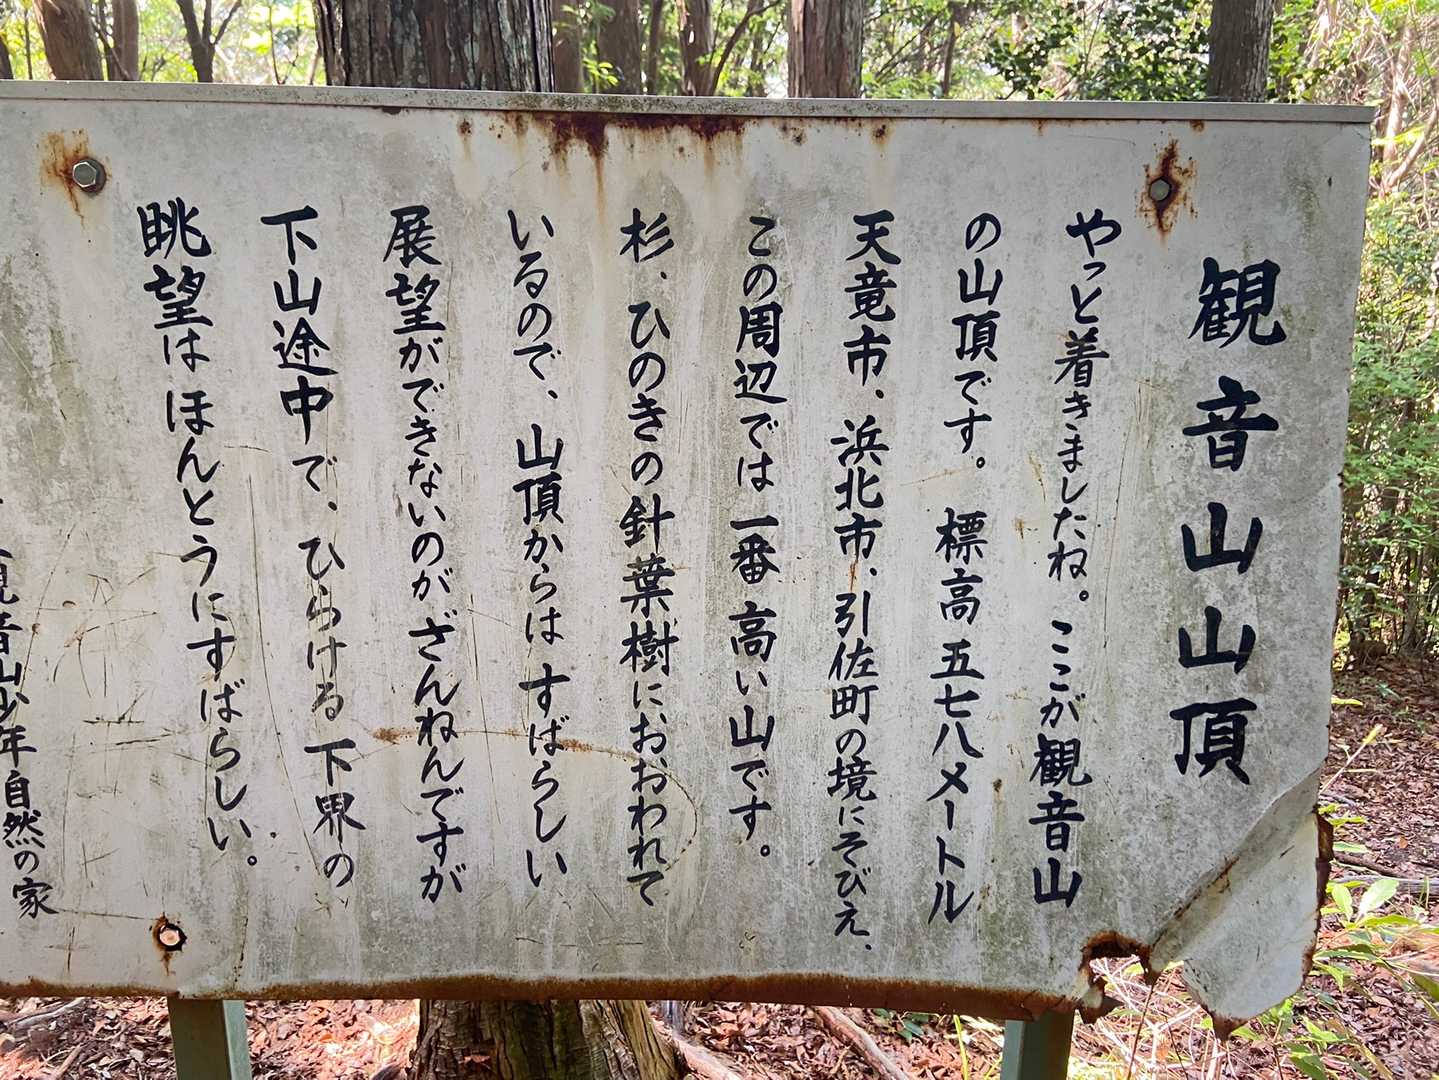 観音山山頂
やっと着きましたね。ここが観音山
の山頂です。標高五七八メートル
天竜市、浜北市、引佐町の境にそびえ、
この周辺では一番高い山です。
杉、ひのきの針葉樹におおわれて
いるので、山頂からはすばらしい
展望ができないのがざんねんですが
下山途中で、ひらける下界の
眺望はほんとうにすばらしい。
観音山少年自然の家